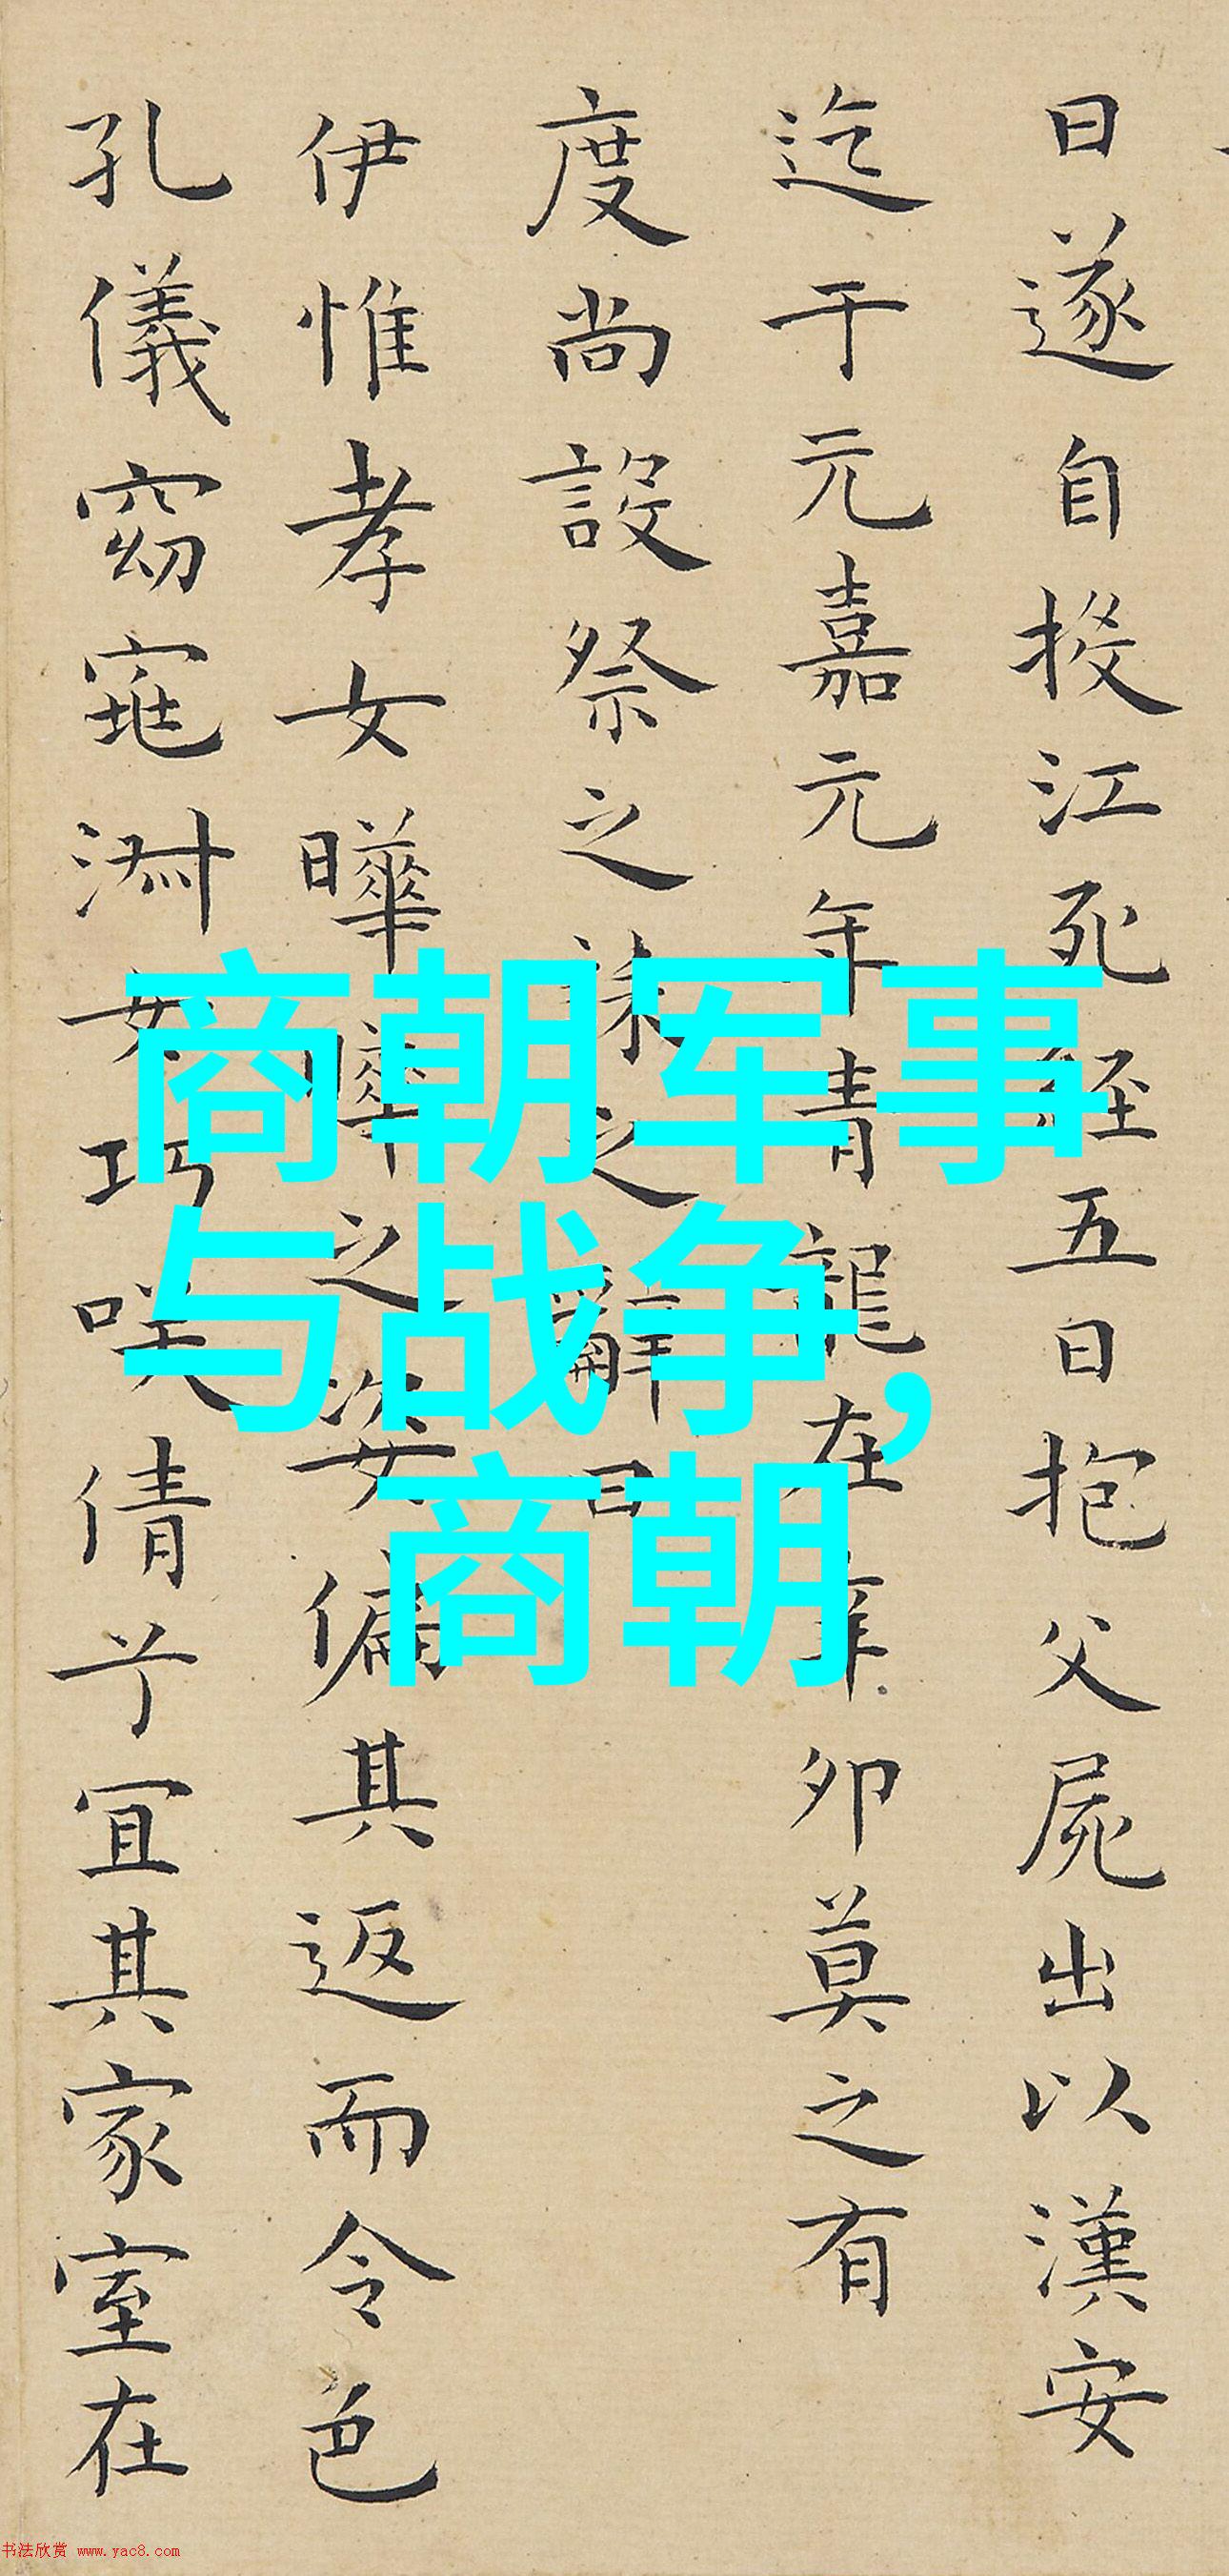 日遂自投江死經五日抱父屍出以漢安
迄于元嘉元年青龍在辛卯莫之有
度尚設祭之誄之辭曰
伊惟孝女曄曄之姿偏其返而令色
孔儀窈窕淑女巧咲倩兮宜其家室在
商朝军事
与战争,
商朝
书法欣赏 www.yac8.com